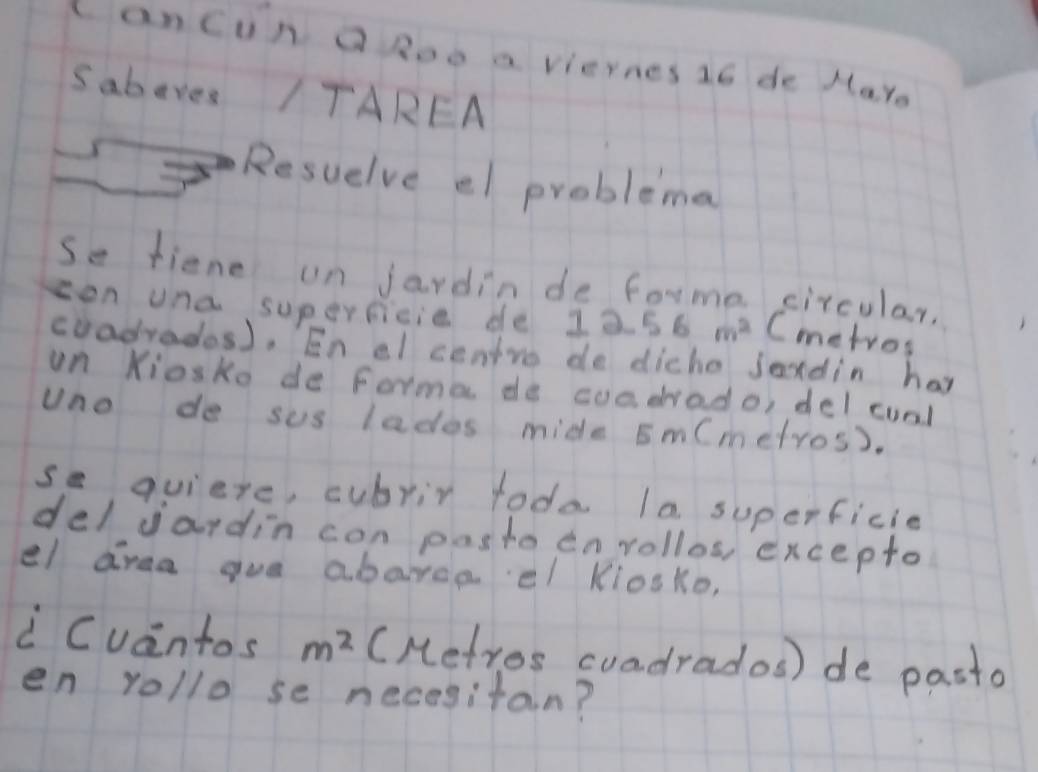 Cancún Q Roo a viernes 16 de Mayo
saberes / TAREA
Resuelve el problema
se tiene un jardin de forma circular.
con una superficie de 1256 m² (metros
cuadrados). En el centro de dicho jardin hay
un Kiosko de Forma de cuadrado, del cual
uno de sus lados mide 5m (metros).
se quiere, cubrir toda la superficie
del jardin con pasto en rollos, excepto
el área que abarca el Kiosko,
¿Cuántos m² (Metros cuadrados) de pasto
en rollo se necesitan?